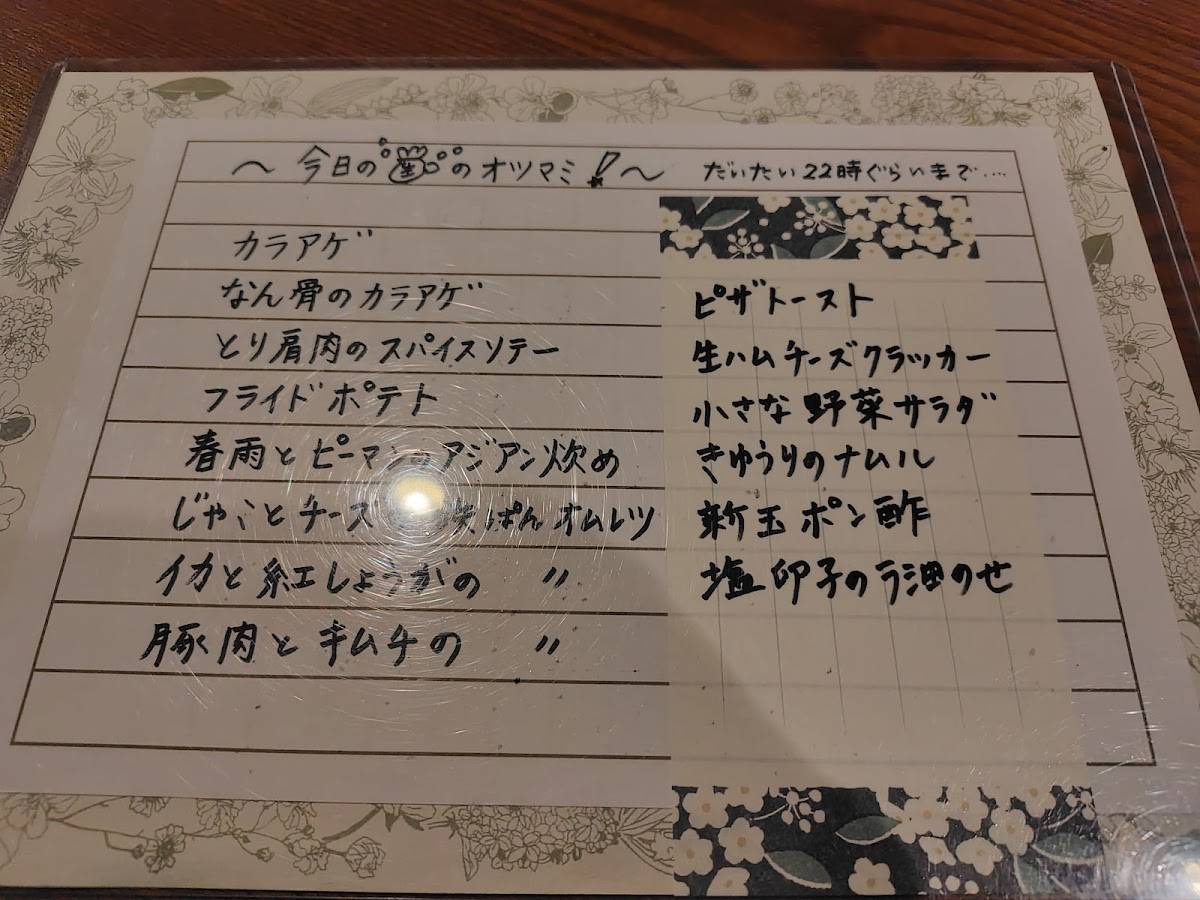 ～ 今日の のオツマミ！～ だいたい22時ぐらいまで....
カラアゲ
なん骨のカラアゲ
とり肩肉のスパイスソテー
フライドポテト
春雨とピーマンのアジアン炊め
じゃことチーズ ぱんオムレツ
イカと紅しょうがの 〃
豚肉とキムチの 〃
ピザトースト
生ハムチーズクラッカー
小さな野菜サラダ
きゅうりのナムル
新玉ポン酢
塩卵子のラー油のせ